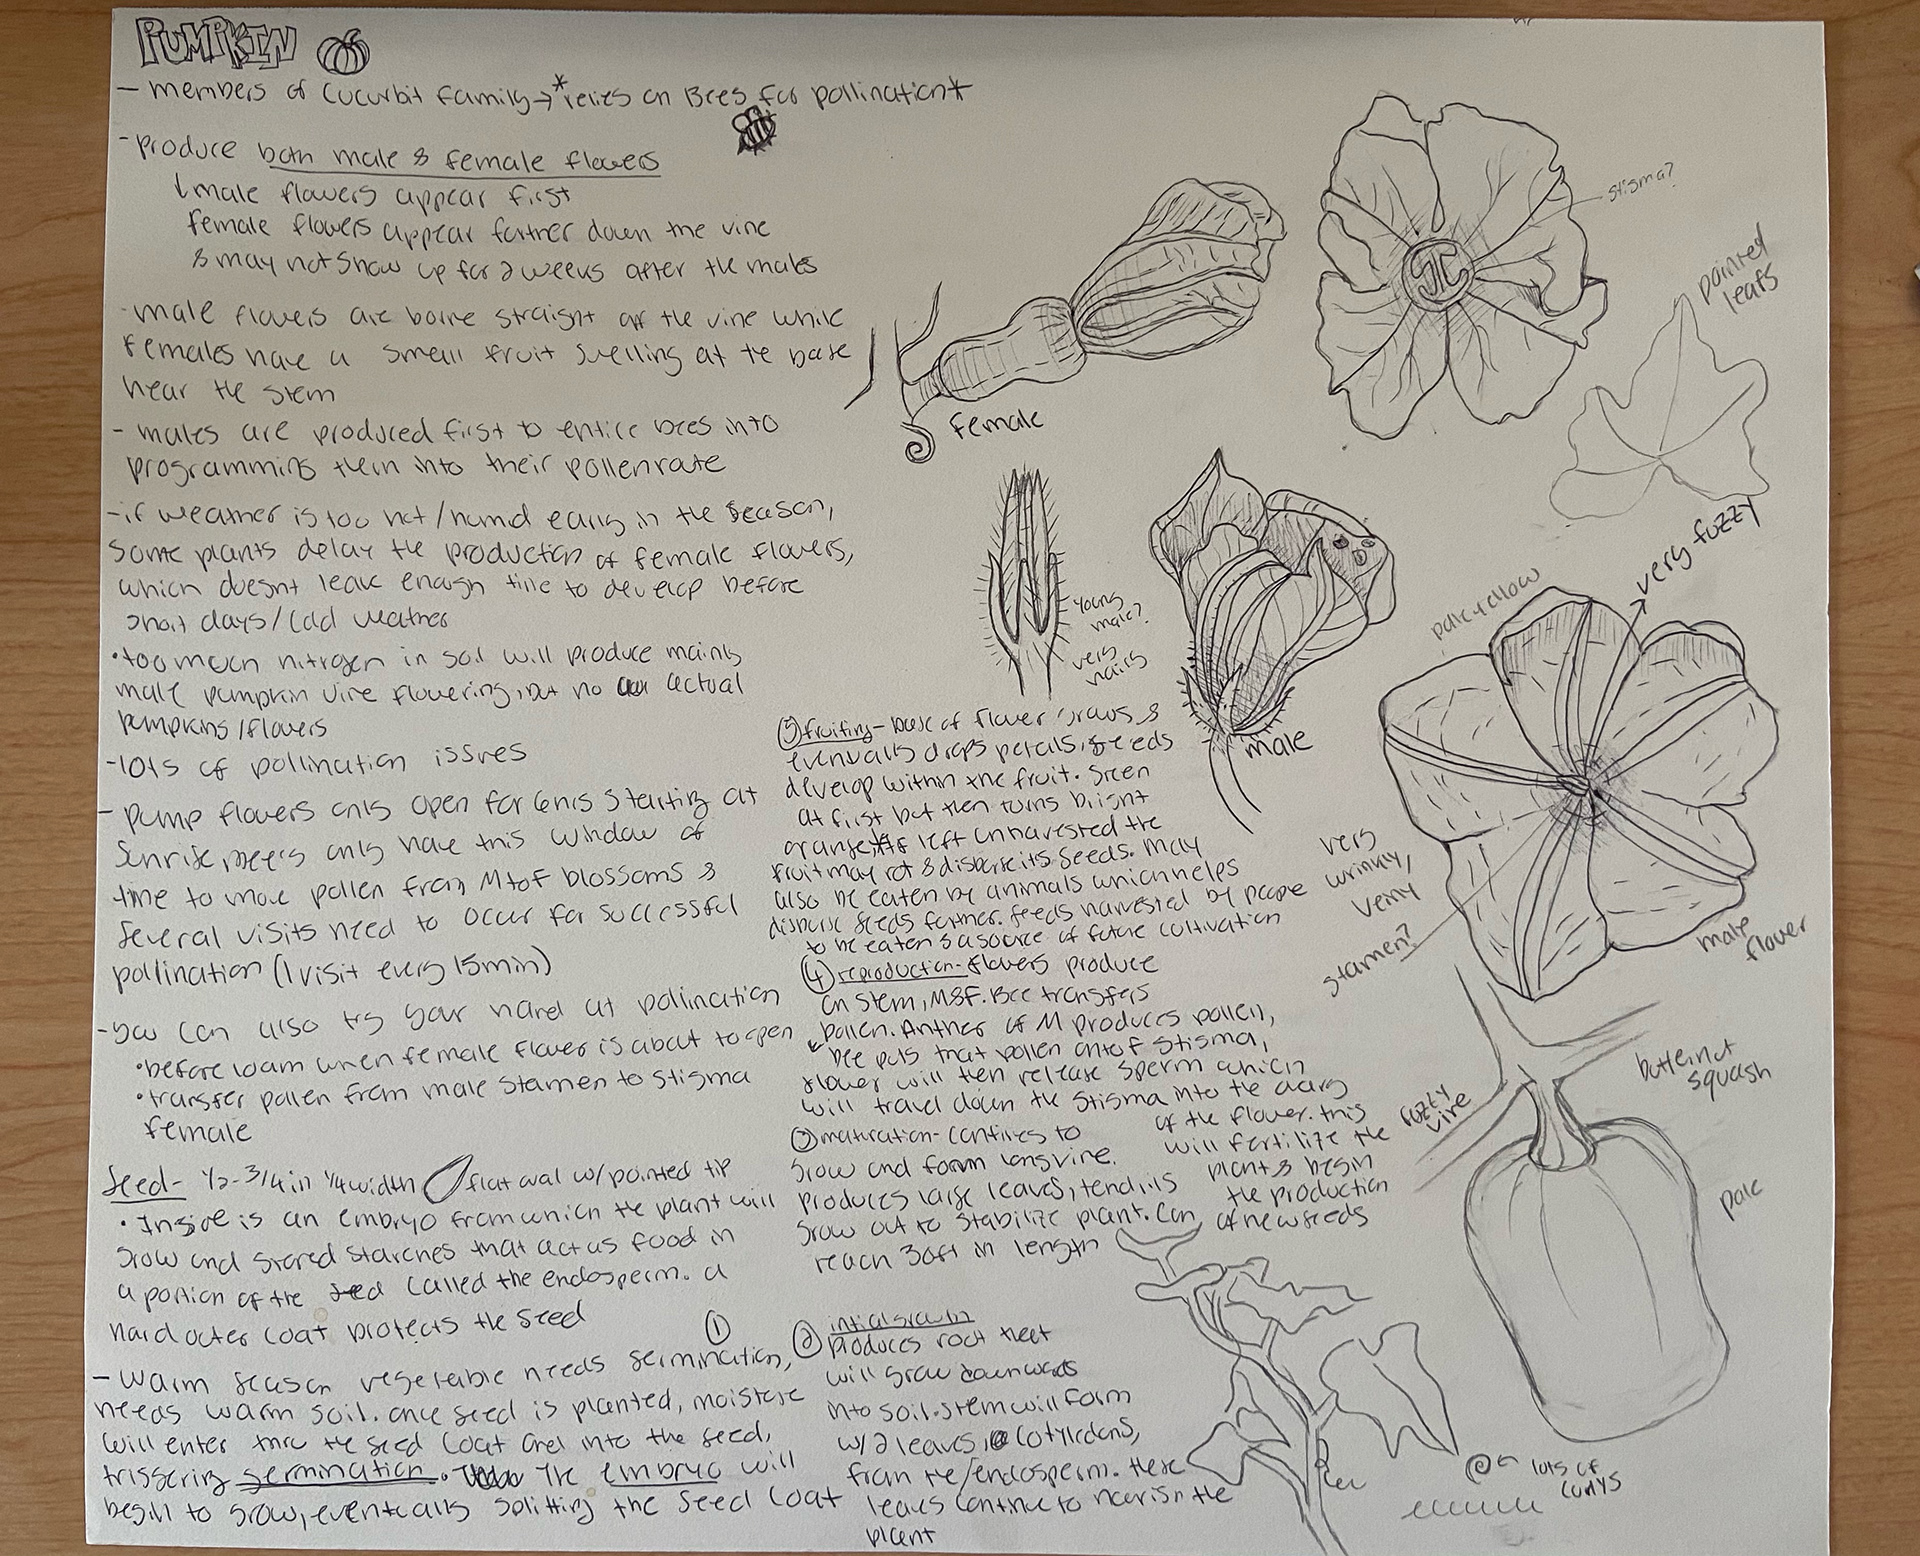 PUMPKIN
- members of Cucurbit family → *relies on Bees for pollination*
- produce both male & female flowers
male flowers appear first
female flowers appear farther down the vine
& may not show up for 2 weeks after the males
- male flowers are borne straight off the vine while
females have a small fruit swelling at the base
near the stem
- males are produced first to entice bees into
programming them into their pollenroute
- if weather is too hot/humid early in the season,
some plants delay the production of female flowers,
which doesnt leave enough time to develop before
short days/cold weather
• too much nitrogen in soil will produce mainly
male pumpkin vine flowering, but no actual
pumpkins/flowers
- lots of pollination issues
- pump flowers only open for 6hrs starting at
sunrise, bees only have this window of
time to move pollen from M to F blossoms &
several visits need to occur for successful
pollination (1 visit every 15min)
- you can also try your hand at pollination
• before 10am when female flower is about to open
• transfer pollen from male stamen to stigma
female
Seed- 1/2-3/4 in 1/4 width flat oval w/ pointed tip
• Inside is an embryo from which the plant will
grow and stored starches that act as food in
a portion of the seed called the endosperm. a
hard outer coat protects the seed
①
- warm season vegetable needs germination,
needs warm soil. once seed is planted, moisture
will enter thru the seed coat and into the seed,
triggering germination. The embryo will
begin to grow, eventually splitting the seed coat
② intial growth
produces root that
will grow downwards
into soil. stem will form
w/ 2 leaves, cotyledons,
from the/endosperm. these
leaves continue to nourish the
plant
③ maturation- continues to
grow and form long vine.
produces large leaves, tendrils
grow out to stabilize plant. can
reach 30ft in length
④ reproduction- flowers produce
on stem, M&F. Bee transfers
pollen. Anther of M produces pollen,
bee puts that pollen onto F stigma,
flower will then release sperm which
will travel down the stigma into the ovary
of the flower. this
will fertilize the
plant & begin
the production
of new seeds
⑤ fruiting- base of flower grows &
eventually drops petals, seeds
develop within the fruit. green
at first but then turns bright
orange, if left unharvested the
fruit may rot & disburse its seeds. may
also be eaten by animals which helps
disburse seeds further. seeds harvested by people
to be eaten & a source of future cultivation
female
stigma?
pointed
leafs
young
male?
very
hairy
male
pale yellow
very fuzzy
very
wrinkly,
veiny
stamen?
male
flower
fuzzy
vine
butternut
squash
pale
lots of
curlys